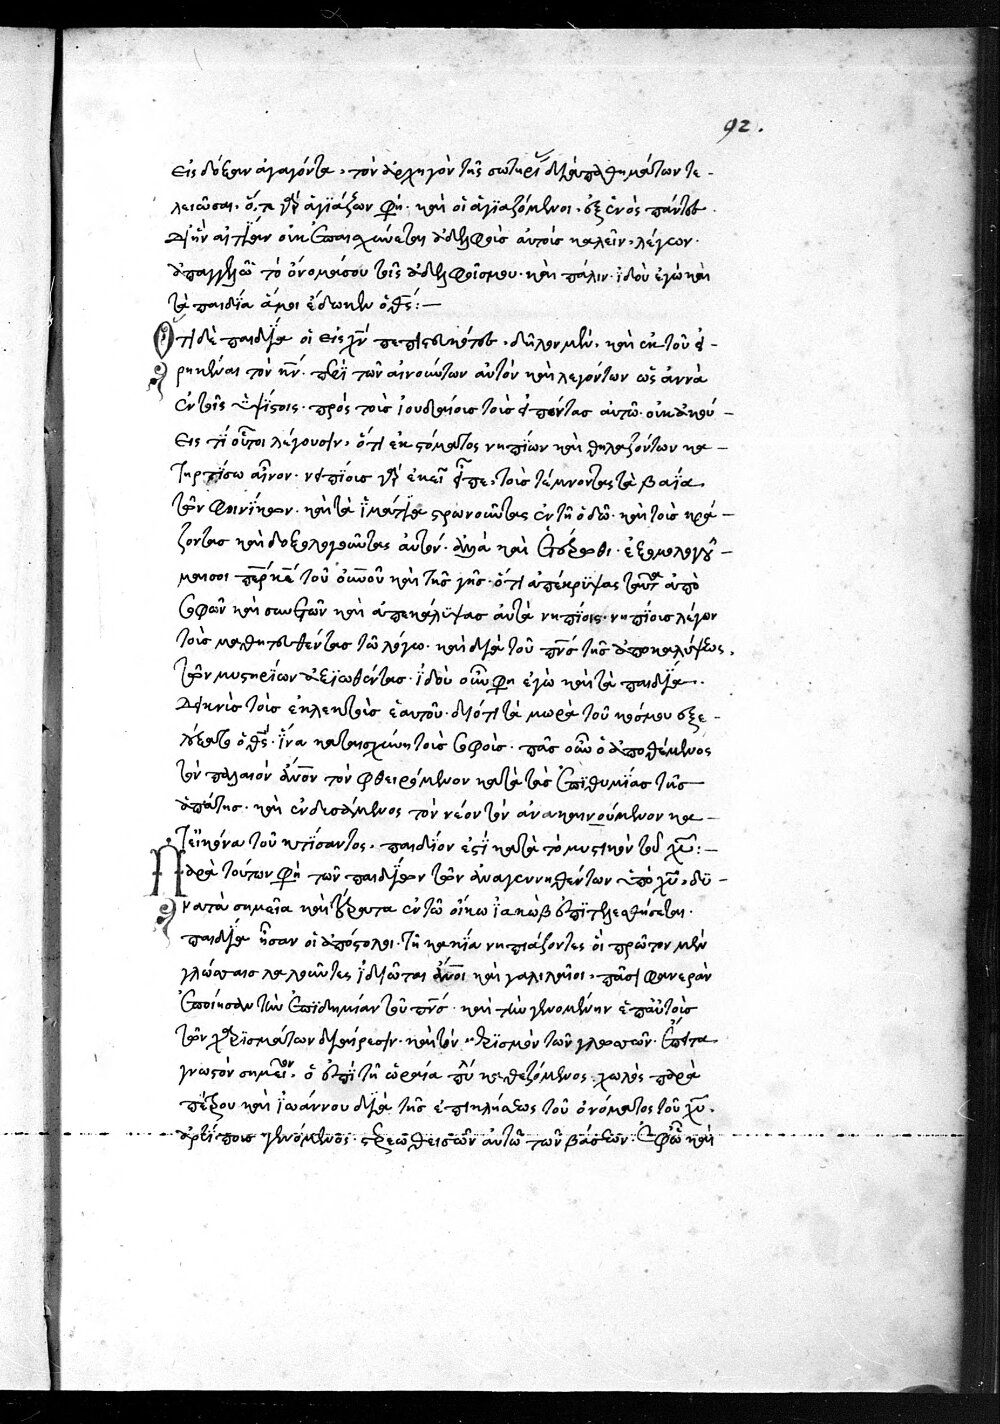 92.
εἰς δόξαν ἀγαγόντα, τὸν ἀρχηγὸν τῆς σωτηρί διὰ παθημάτων τε-
λειῶσαι. ὅ, τε γὰρ ἁγιάζων φη. καὶ οἱ ἁγιαζόμενοι, ἐξ ἑνὸς πάντες.
δι' ἣν αἰτίαν οὐκ ἐπαισχύνεται ἀδελφοὺς αὐτοὺς καλεῖν, λέγων.
ἀπαγγελῶ τὸ ὄνομά σου τοῖς ἀδελφοῖς μου. καὶ πάλιν. ἰδοὺ ἐγὼ καὶ
τὰ παιδία ἅ μοι ἔδωκεν ὁ θς:—
Ὅτι δὲ παιδία οἱ εἰς χν πεπιστευκότες, δῆλον μὲν, καὶ ἐκ τοῦ εἰ-
ρηκέναι τὸν κν. περὶ τῶν αἰνούντων αὐτὸν καὶ λεγόντων ὡς ἀννὰ
ἐν τοῖς ὑψίστοις. πρὸς τοὺς ἰουδαίους τοὺς εἰπόντας αὐτῶ. οὐκ ἀκού-
εις τί οὗτοι λέγουσιν, ὅτι ἐκ στόματος νηπίων καὶ θηλαζόντων κα-
τηρτίσω αἶνον. νηπίους γὰρ ἐκεῖ εἶπε, τοὺς τέμνοντας τὰ βαΐα
τῶν φοινίκων. καὶ τὰ ἱμάτια στρωννοῦντας ἐν τῆ ὁδῶ. καὶ τοὺς κρά-
ζοντας καὶ δοξολογοῦντας αὐτόν. ἀλλὰ καὶ ἐξομολογοῦ-
μαι σοι περ κε τοῦ οὐνοῦ καὶ τῆς γῆς. ὅτι ἀπέκρυψας ταῦτα ἀπὸ
σοφῶν καὶ συνετῶν καὶ ἀπεκάλυψας αὐτὰ νηπίοις. νηπίους λέγων
τοὺς μαθητευθέντας τῶ λόγω. καὶ διὰ τοῦ πνς τῆς ἀποκαλύψεως,
τῶν μυστηρίων ἀξιωθέντας. ἰδοὺ οὖν φη ἐγὼ καὶ τὰ παιδία.
δεικνὺς τοὺς ἐκλεκτοὺς ἑαυτοῦ. διότι τὰ μωρὰ τοῦ κόσμου ἐξε-
λέξατο ὁ θς. ἵνα καταισχύνη τοὺς σοφούς. πᾶς οὖν ὁ ἀποθέμενος
τὸν παλαιὸν ἄνον τὸν φθειρόμενον κατὰ τὰς ἐπιθυμίας τῆς
ἀπάτης. καὶ ἐνδυσάμενος τὸν νέον τὸν ἀνακαινούμενον κα-
τ' εἰκόνα τοῦ κτίσαντος, παιδίον ἐστὶ κατὰ τὸ μυστικὸν τοῦ χυ:—
Παρὰ τούτων φη τῶν παιδίων τῶν ἀναγεννηθέντων ὑπὸ χυ, δύ-
νατὰ σημεῖα καὶ τέρατα ἐν τῶ οἴκω ἰακὼβ ἐπιτελεσθήσεται.
παιδία ἦσαν οἱ ἀπόστολοι. τῆ κακία νηπιάζοντες. οἳ πρῶτον μὲν
γλώσσαις λαλοῦντες ἰδιῶται ἄνοι καὶ γαλιλαῖοι, πᾶσι φανερὰν
ἐποίησαν τὴν ἐπιδημίαν τοῦ πνς. καὶ τὴν γενομένην ἐπ' αὐτοὺς
τῶν χαρισμάτων διαίρεσιν. καὶ τὸν μερισμὸν τῶν γλωσσῶν. ἔπειτα
γνωστὸν σημεῖον, ὁ ἐπὶ τῆ ὡραία πύ καθεζόμενος χωλὸς παρὰ
πέτρου καὶ ἰωάννου διὰ τῆς ἐπικλήσεως τοῦ ὀνόματος τοῦ χυ.
ἀρτίπους γενόμενος. στερεωθεισῶν αὐτῶ τῶν βάσεων. ἐφ' ὧ καὶ